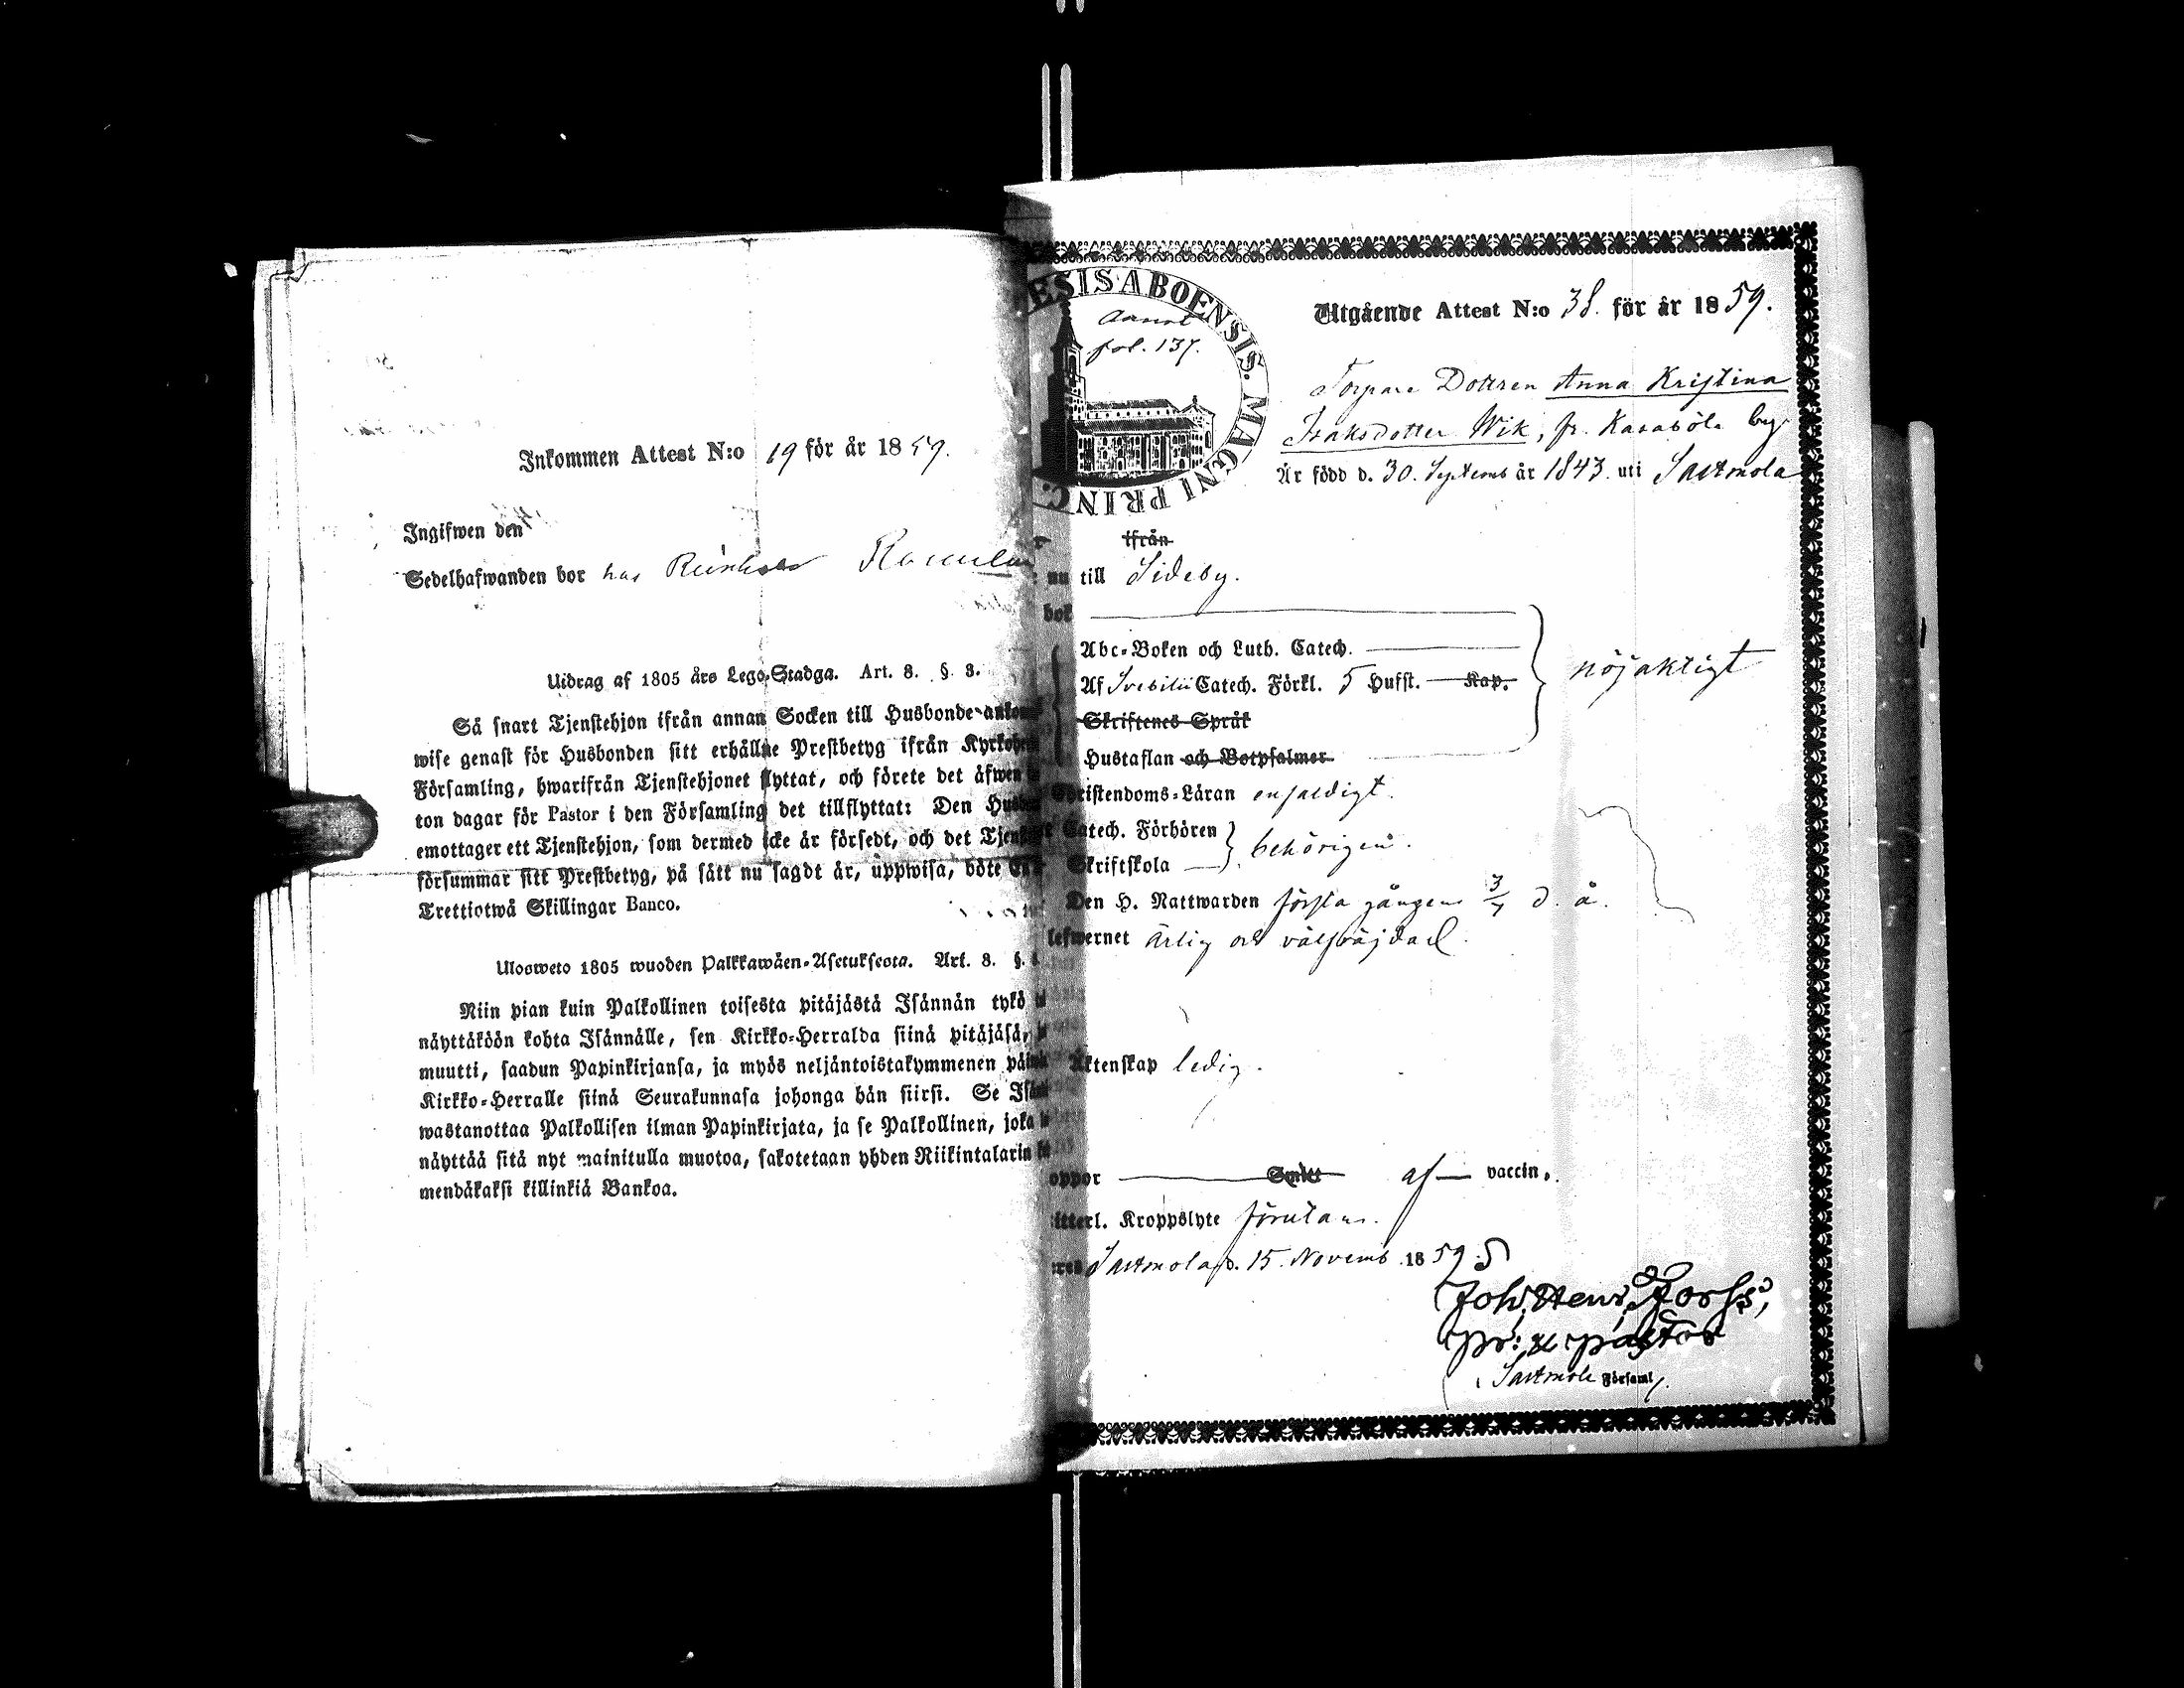 Inkommen Attest N:o 19 för år 1859.
Ingifwen den
Sedelhafwanden bor hos
Utdrag af 1805 års Lego-Stadga. Art. 8. §. 3.
Så snart Tjenstehjon ifrån annan Socken till Husbonde
wise genast för Husbonden sitt erhållne Prestbetyg ifrån
Församling, hwarifrån Tjenstehjonet flyttat, och förete det äfwen
ton dagar för Pastor i den Församling det tillflyttat: Den
emottager ett Tjenstehjon, som dermed icke är försedt, och det
försummar sitt Prestbetyg, på sätt nu sagdt är, uppwisa, böte
Trettiotwå Skillingar Banco.
Ulosweto 1805 wuoden Palkkawäen-Asetuksesta. Art. 8. §.
Niin pian kuin Palkollinen toisesta pitäjästä Isännän tykö
näyttäköön kohta Isännälle, sen Kirkko-Herralda siinä pitäjäsä,
muutti, saadun Papinkirjansa, ja myös neljäntoistakymmenen
Kirkko-Herralle siinä Seurakunnasa johonga hän siirsi. Se
wastanottaa Palkollisen ilman Papinkirjata, ja se Palkollinen, joka
näyttää sitä nyt mainitulla muotoa, sakotetaan yhden Riikintalarin
mendäkaksi killinkiä Bankoa.
ESIS ABOENSIS. MAGNI PRINC.
fol. 137.
Utgående Attest N:o 38. för år 1859.
Torpare Dottren Anna Kristina
Isaksdotter Wik, fr. Kasaböle by
Är född d. 30. Septemb år 1843. uti Sastmola
ifrån
nu till Sideby.
bok
Abc-Boken och Luth. Catech.
Af Svebilii Catech. Förkl. 5 Hufst. Kap.
nöjaktigt
Skriftenes Språk
Hustaflan och Botpsalmer
Christendoms-Läran enfaldigt.
Catech. Förhören
behörigen.
Skriftskola
Den H. Nattwarden första gången 3/7 d. å.
lefwernet ärlig och välfräjdad.
Äktenskap ledig.
oppor Smitt af vaccin.
itterl. Kroppslyte förutan.
Sastmola d. 15. Novemb. 1859.
Joh. Henr. Forss,
pr: & pastor
i Sastmola Församl.